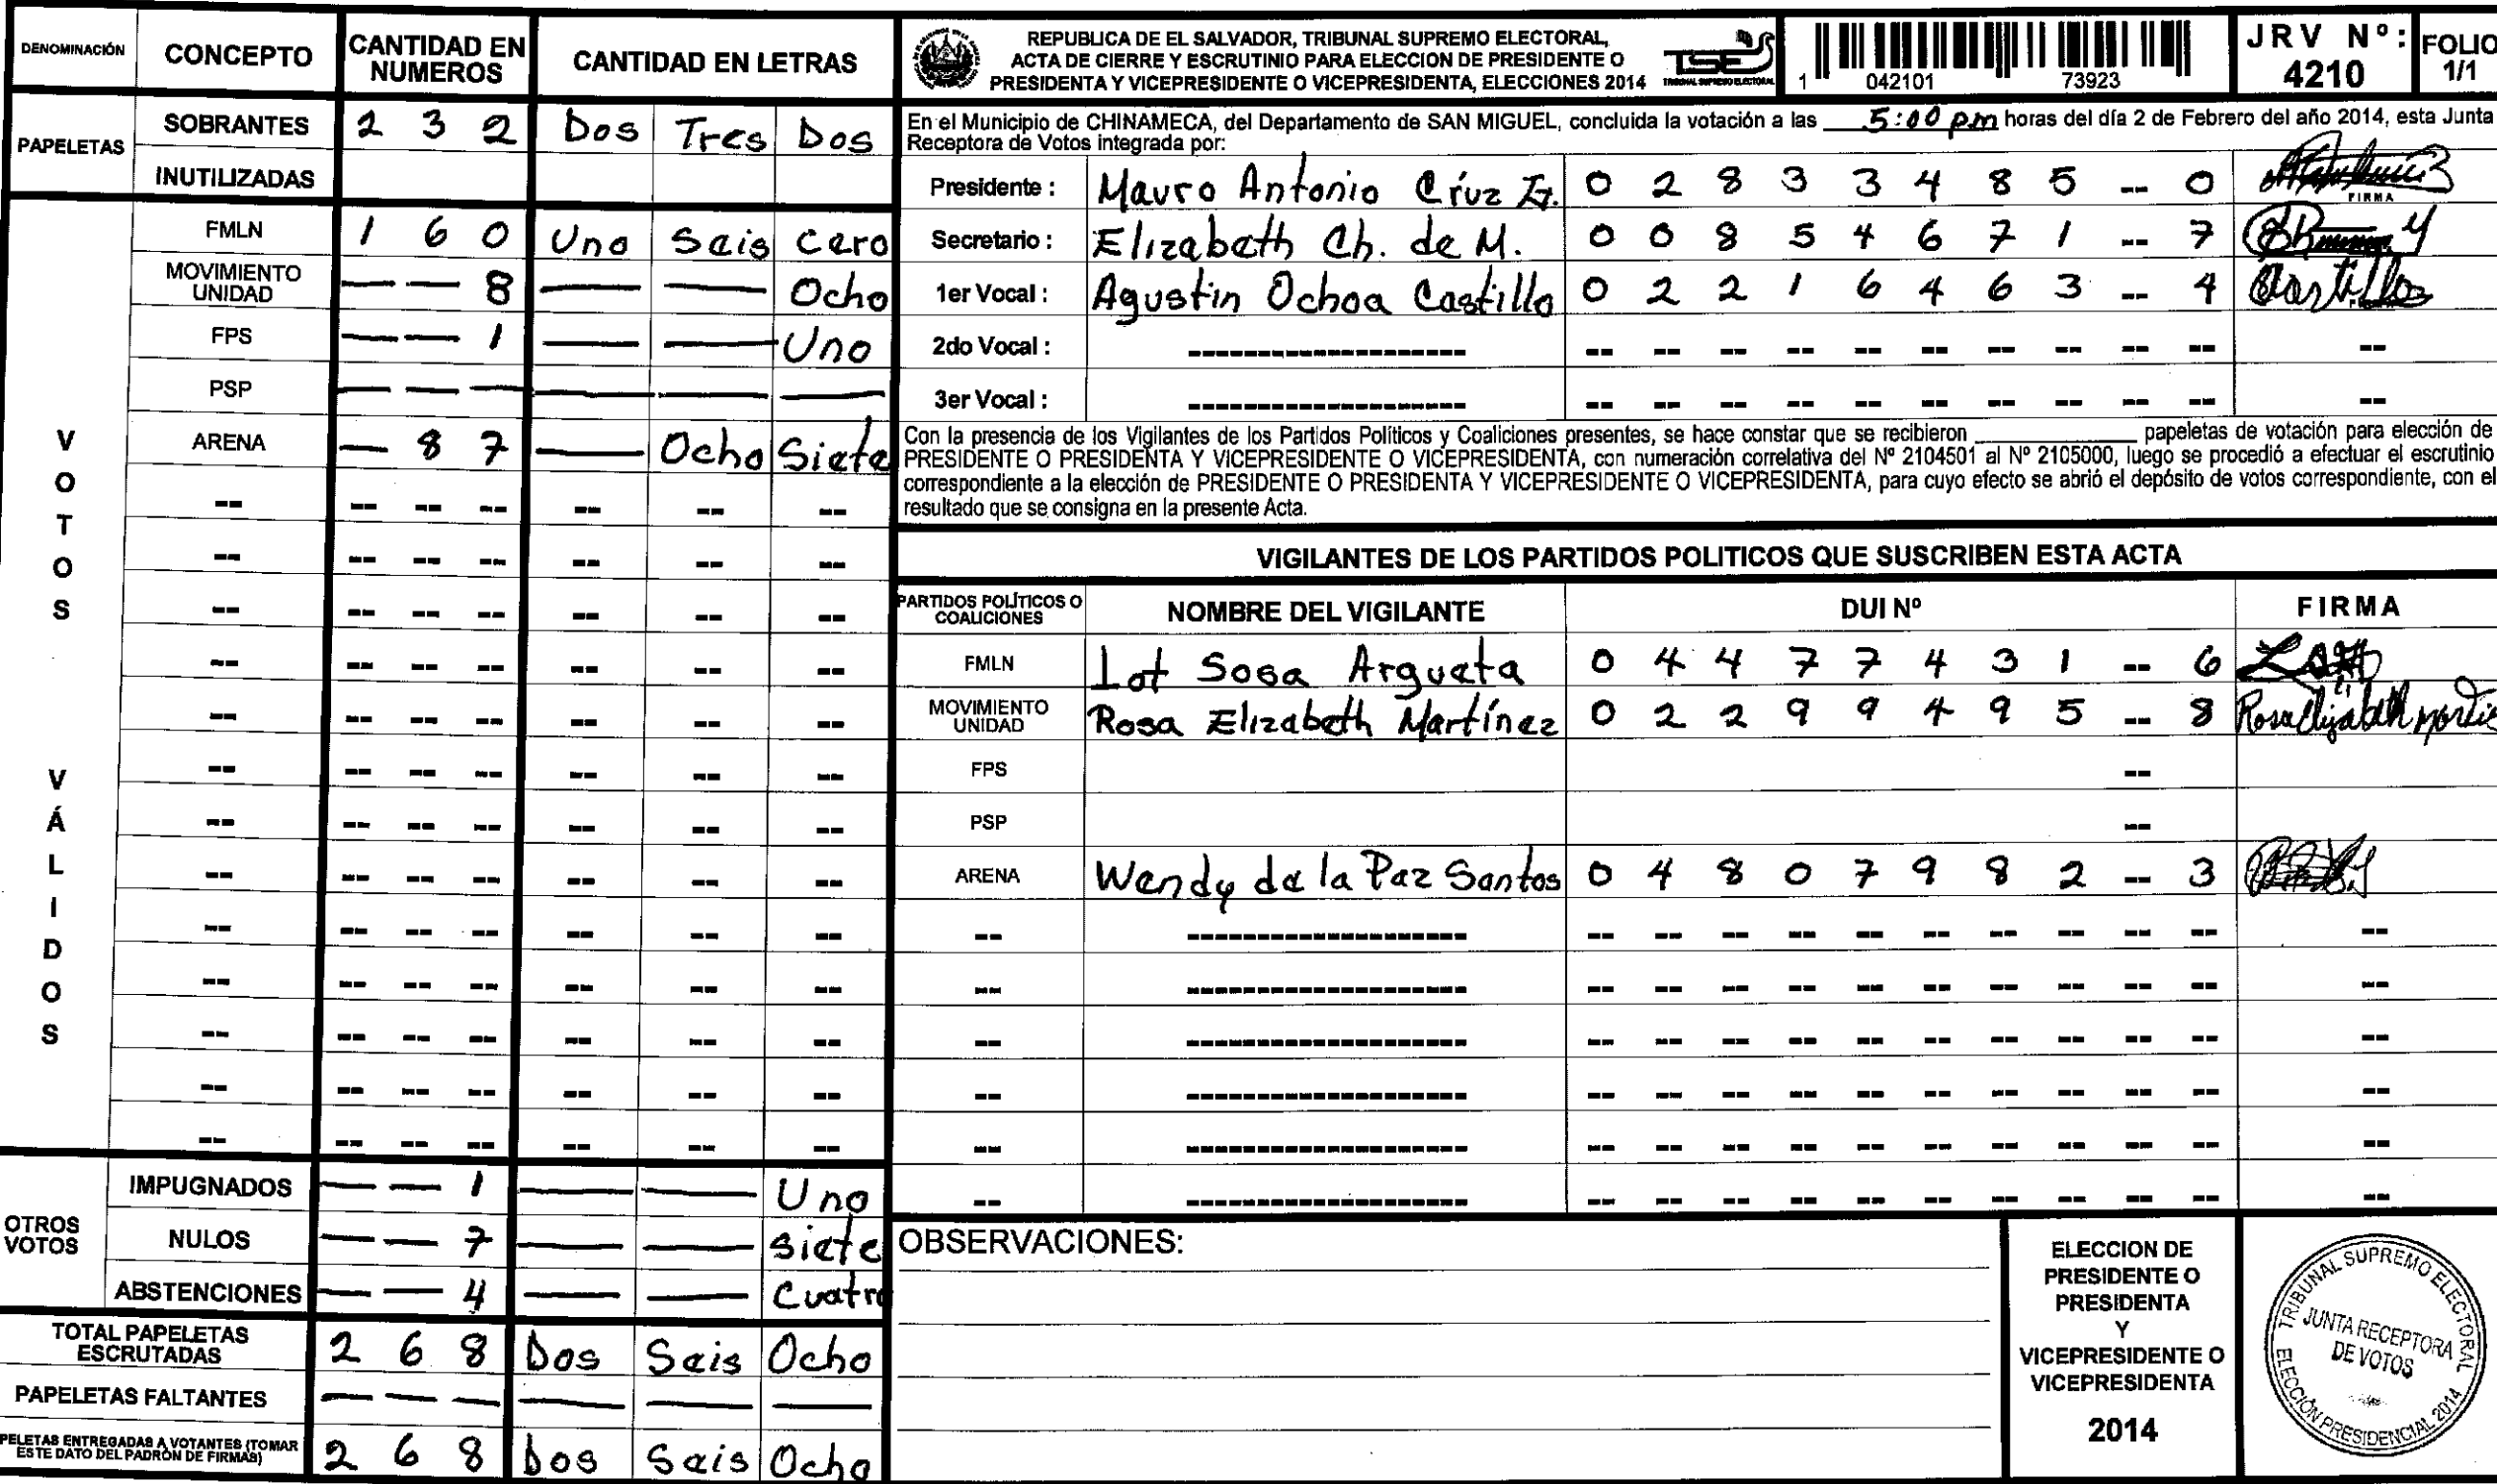 DENOMINACIÓN CONCEPTO CANTIDAD EN NUMEROS CANTIDAD EN LETRAS
PAPELETAS
SOBRANTES 2 3 2 Dos Tres Dos
INUTILIZADAS
VOTOS VÁLIDOS
FMLN 1 6 0 Uno Seis Cero
MOVIMIENTO UNIDAD — — 8 — — Ocho
FPS — — 1 — — Uno
PSP — — — — — —
ARENA — 8 7 — Ocho Siete
-- -- -- -- -- -- --
-- -- -- -- -- -- --
-- -- -- -- -- -- --
-- -- -- -- -- -- --
-- -- -- -- -- -- --
-- -- -- -- -- -- --
-- -- -- -- -- -- --
-- -- -- -- -- -- --
-- -- -- -- -- -- --
-- -- -- -- -- -- --
-- -- -- -- -- -- --
-- -- -- -- -- -- --
-- -- -- -- -- -- --
OTROS VOTOS
IMPUGNADOS — — 1 — — Uno
NULOS — — 7 — — Siete
ABSTENCIONES — — 4 — — Cuatro
TOTAL PAPELETAS ESCRUTADAS 2 6 8 Dos Seis Ocho
PAPELETAS FALTANTES — — — — — —
PELETAS ENTREGADAS A VOTANTES (TOMAR
ESTE DATO DEL PADRÓN DE FIRMAS) 2 6 8 Dos Seis Ocho
REPUBLICA DE EL SALVADOR, TRIBUNAL SUPREMO ELECTORAL,
ACTA DE CIERRE Y ESCRUTINIO PARA ELECCION DE PRESIDENTE O
PRESIDENTA Y VICEPRESIDENTE O VICEPRESIDENTA, ELECCIONES 2014
TSE
TRIBUNAL SUPREMO ELECTORAL
1 042101 73923
JRV Nº: 4210
FOLIO 1/1
En el Municipio de CHINAMECA, del Departamento de SAN MIGUEL, concluida la votación a las 5:00 pm horas del día 2 de Febrero del año 2014, esta Junta
Receptora de Votos integrada por:
Presidente : Mauro Antonio Cruz 0 2 8 3 3 4 8 5 -- 0
FIRMA
Secretario : Elizabeth Ch. de M. 0 0 8 5 4 6 7 1 -- 7
1er Vocal : Agustin Ochoa Castillo 0 2 2 1 6 4 6 3 -- 4
2do Vocal : -------------------- -- -- -- -- -- -- -- -- -- -- --
3er Vocal : -------------------- -- -- -- -- -- -- -- -- -- -- --
Con la presencia de los Vigilantes de los Partidos Políticos y Coaliciones presentes, se hace constar que se recibieron ____________ papeletas de votación para elección de
PRESIDENTE O PRESIDENTA Y VICEPRESIDENTE O VICEPRESIDENTA, con numeración correlativa del Nº 2104501 al Nº 2105000, luego se procedió a efectuar el escrutinio
correspondiente a la elección de PRESIDENTE O PRESIDENTA Y VICEPRESIDENTE O VICEPRESIDENTA, para cuyo efecto se abrió el depósito de votos correspondiente, con el
resultado que se consigna en la presente Acta.
VIGILANTES DE LOS PARTIDOS POLITICOS QUE SUSCRIBEN ESTA ACTA
PARTIDOS POLÍTICOS O COALICIONES NOMBRE DEL VIGILANTE DUI Nº FIRMA
FMLN Lot Sosa Argueta 0 4 4 7 7 4 3 1 -- 6
MOVIMIENTO UNIDAD Rosa Elizabeth Martínez 0 2 2 9 9 4 9 5 -- 8 Rosa Elizabeth
FPS --
PSP --
ARENA Wendy de la Paz Santos 0 4 8 0 7 9 8 2 -- 3
-- -------------------- -- -- -- -- -- -- -- -- -- -- --
-- -------------------- -- -- -- -- -- -- -- -- -- -- --
-- -------------------- -- -- -- -- -- -- -- -- -- -- --
-- -------------------- -- -- -- -- -- -- -- -- -- -- --
-- -------------------- -- -- -- -- -- -- -- -- -- -- --
-- -------------------- -- -- -- -- -- -- -- -- -- -- --
OBSERVACIONES:
ELECCION DE
PRESIDENTE O
PRESIDENTA
Y
VICEPRESIDENTE O
VICEPRESIDENTA
2014
TRIBUNAL SUPREMO ELECTORAL
JUNTA RECEPTORA
DE VOTOS
ELECCIÓN PRESIDENCIAL 2014